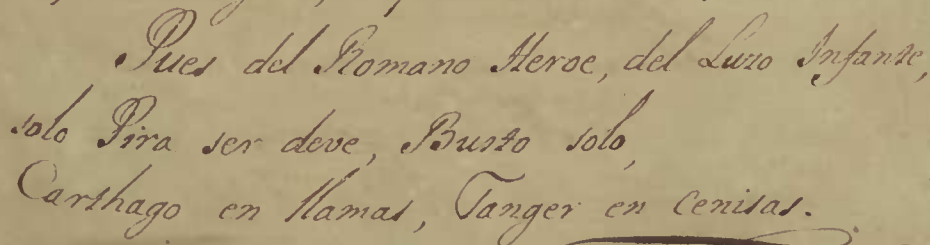 Pues del Romano Heroe, del Luzo Infante,
solo Pira ser deve, Busto solo,
Carthago en llamas, Tanger en Cenisas.